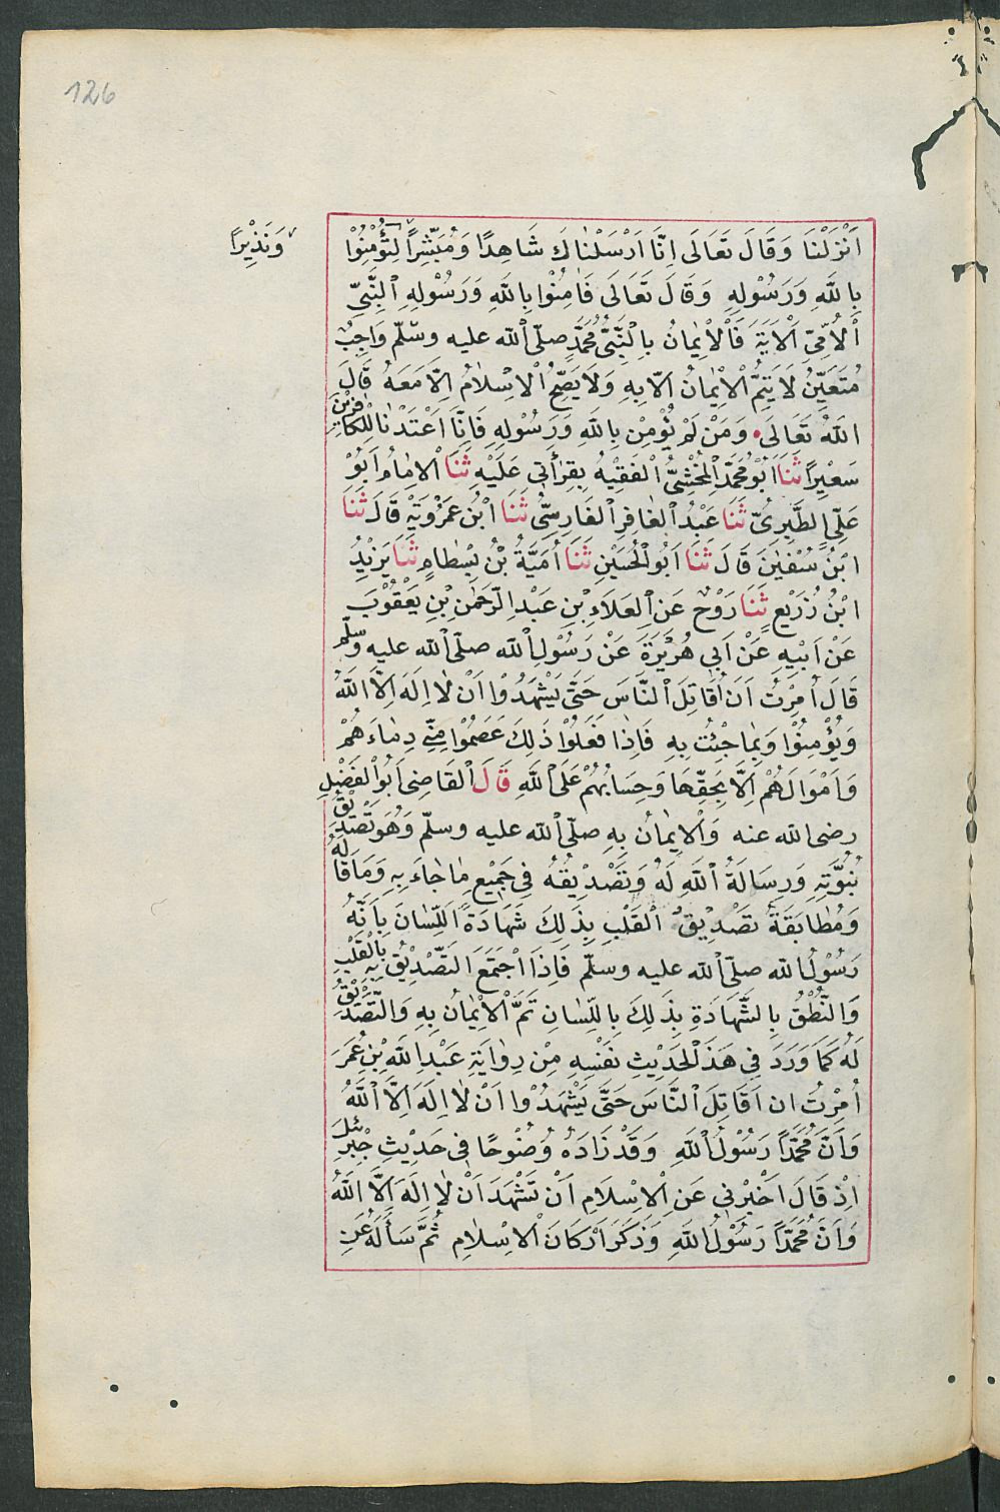 126
وَنَذِيْرًا
اَنْزَلْنَا وَقَالَ تَعَالَى اِنَّا اَرْسَلْنَاكَ شَاهِدًا وَمُبَشِّرًا لِتُؤْمِنُوْا
بِاللّٰهِ وَرَسُوْلِهِ وَقَالَ تَعَالَى فَاٰمِنُوْا بِاللّٰهِ وَرَسُوْلِهِ النَّبِىِّ
الْاُمِّىِّ اَلْاٰيَةَ فَالْاِيْمَانُ بِالنَّبِىِّ مُحَمَّدٍ صلّى الله عليه وسلّم وَاجِبٌ
مُتَعَيِّنٌ لَا يَتِمُّ الْاِيْمَانُ اِلَّا بِهِ وَلَا يَصِحُّ الْاِسْلَامُ اِلَّا مَعَهُ قَالَ
اللّٰهُ تَعَالَى وَمَنْ لَمْ يُؤْمِنْ بِاللّٰهِ وَرَسُوْلِهِ فَاِنَّا اَعْتَدْنَا لِلْكَافِرِيْنَ
سَعِيْرًا ثَنَا اَبُوْ مُحَمَّدٍ الْخُشَنِىُّ الْفَقِيْهُ بِقِرَاْتِى عَلَيْهِ ثَنَا الْاِمَامُ اَبُوْ
عَلِىٍّ الطَّبَرِىُّ ثَنَا عَبْدُ الْغَافِرِ الْفَارِسِىُّ ثَنَا ابْنُ عَمْرُوَيْهِ قَالَ ثَنَا
ابْنُ سُفْيٰنَ قَالَ ثَنَا اَبُو الْحُسَيْنِ ثَنَا اُمَيَّةُ بْنُ بِسْطَامٍ ثَنَا يَزِيْدُ
ابْنُ زُرَيْعٍ ثَنَا رَوْحٌ عَنِ الْعَلَاءِ بْنِ عَبْدِ الرَّحْمٰنِ بْنِ يَعْقُوْبَ
عَنْ اَبِيْهِ عَنْ اَبِى هُرَيْرَةَ عَنْ رَسُوْلِ الله صلّى الله عليه وسلّم
قَالَ اُمِرْتُ اَنْ اُقَاتِلَ النَّاسَ حَتَّى يَشْهَدُوْا اَنْ لَا اِلٰهَ اِلَّا اللّٰهُ
وَيُؤْمِنُوْا وَبِمَا جِئْتُ بِهِ فَاِذَا فَعَلُوْا ذٰلِكَ عَصَمُوْا مِنِّى دِمَاءَهُمْ
وَاَمْوَالَهُمْ اِلَّا بِحَقِّهَا وَحِسَابُهُمْ عَلَى اللّٰهِ قَالَ الْقَاضِى اَبُو الْفَضْلِ
رضى الله عنه وَالْاِيْمَانُ بِهِ صلّى الله عليه وسلّم وَهُوَ تَصْدِيْقُ
نُبُوَّتِهِ وَرِسَالَةُ اللّٰهِ لَهُ وَتَصْدِيْقُهُ فِى جَمِيْعِ مَا جَاءَ بِهِ وَمَا قَالَهُ
وَمُطَابَقَةُ تَصْدِيْقُ الْقَلْبِ بِذٰلِكَ شَهَادَةً اللِّسَانَ بِاَنَّهُ
رَسُوْلُ الله صلّى الله عليه وسلّم فَاِذَا اجْتَمَعَ التَّصْدِيْقُ بِهِ بِالْقَلْبِ
وَالنُّطْقُ بِالشَّهَادَةِ بِذٰلِكَ بِاللِّسَانِ تَمَّ الْاِيْمَانُ بِهِ وَالتَّصْدِيْقُ
لَهُ كَمَا وَرَدَ فِى هٰذَ الْحَدِيْثِ نَفْسِهِ مِنْ رِوَايَةِ عَبْدِ اللّٰهِ بْنِ عُمَرَ
اُمِرْتُ ان اُقَاتِلَ النَّاسَ حَتَّى يَشْهَدُوْا اَنْ لَا اِلٰهَ اِلَّا اللّٰهُ
وَاَنَّ مُحَمَّدًا رَسُوْلُ اللّٰهِ وَقَدْ زَادَهُ وُضُوْحًا فِى حَدِيْثِ جِبْرِئلَ
اِذْ قَالَ اَخْبِرْنِى عَنِ الْاِسْلَامِ اَنْ تَشْهَدَ اَنْ لَا اِلٰهَ اِلَّا اللّٰهُ
وَاَنَّ مُحَمَّدًا رَسُوْلُ اللّٰهِ وَذَكَرَ اَرْكَانَ الْاِسْلَامِ ثُمَّ سَاَلَهُ عَنِ